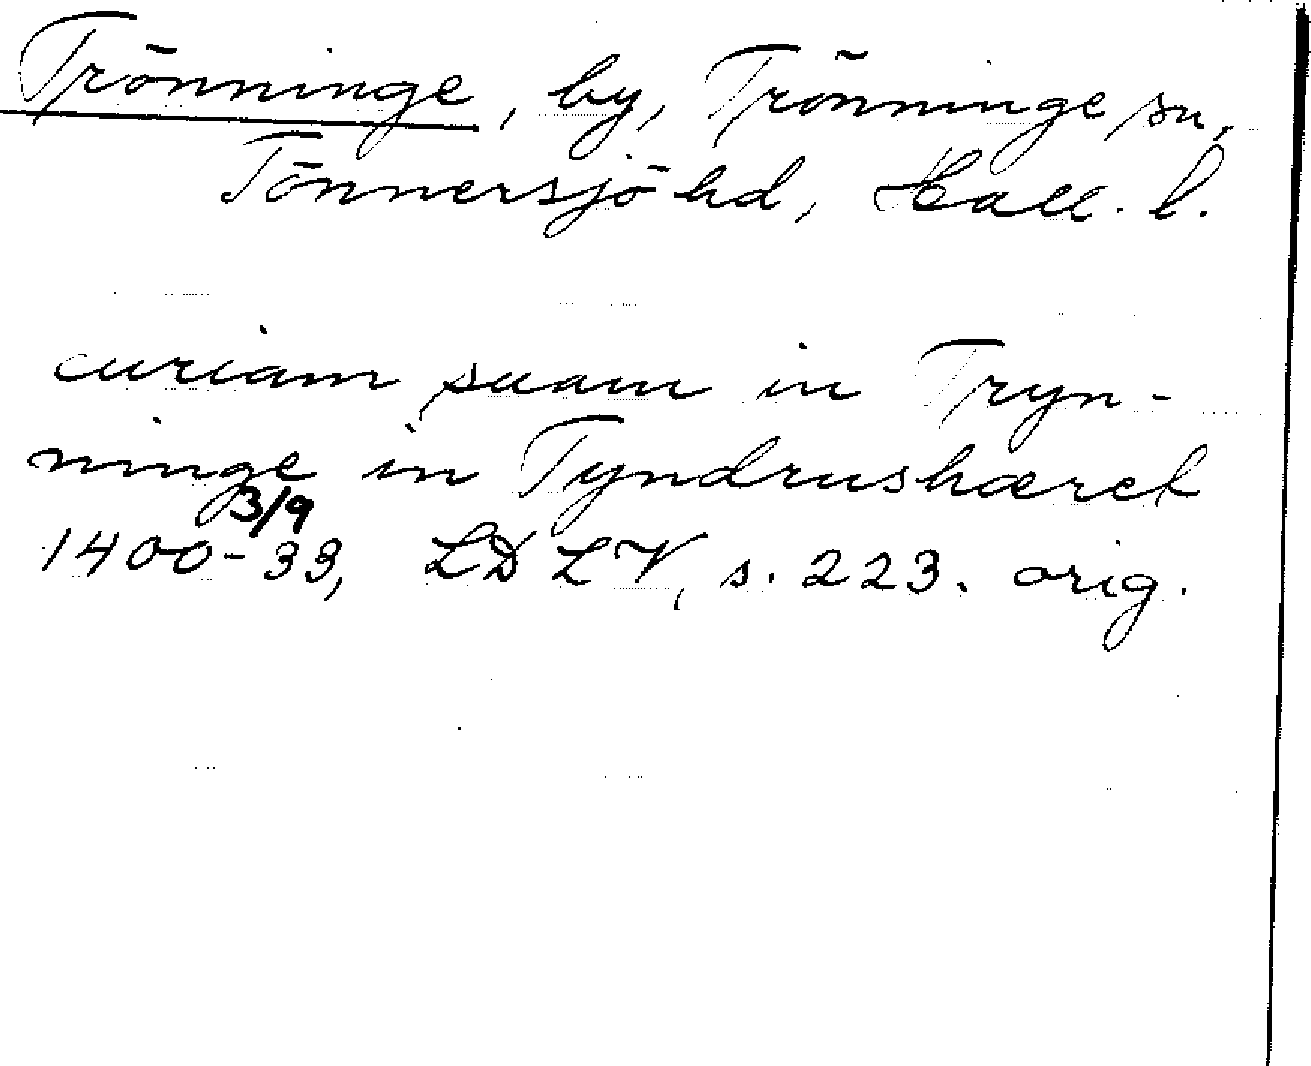 Trönninge, by, Trönninge sn,
Tönnersjö hd, Hall. l.
curiam suam in Tryn-
ninge in Tyndrushæret
3/9
1400-33, LDLV, s. 223. orig.